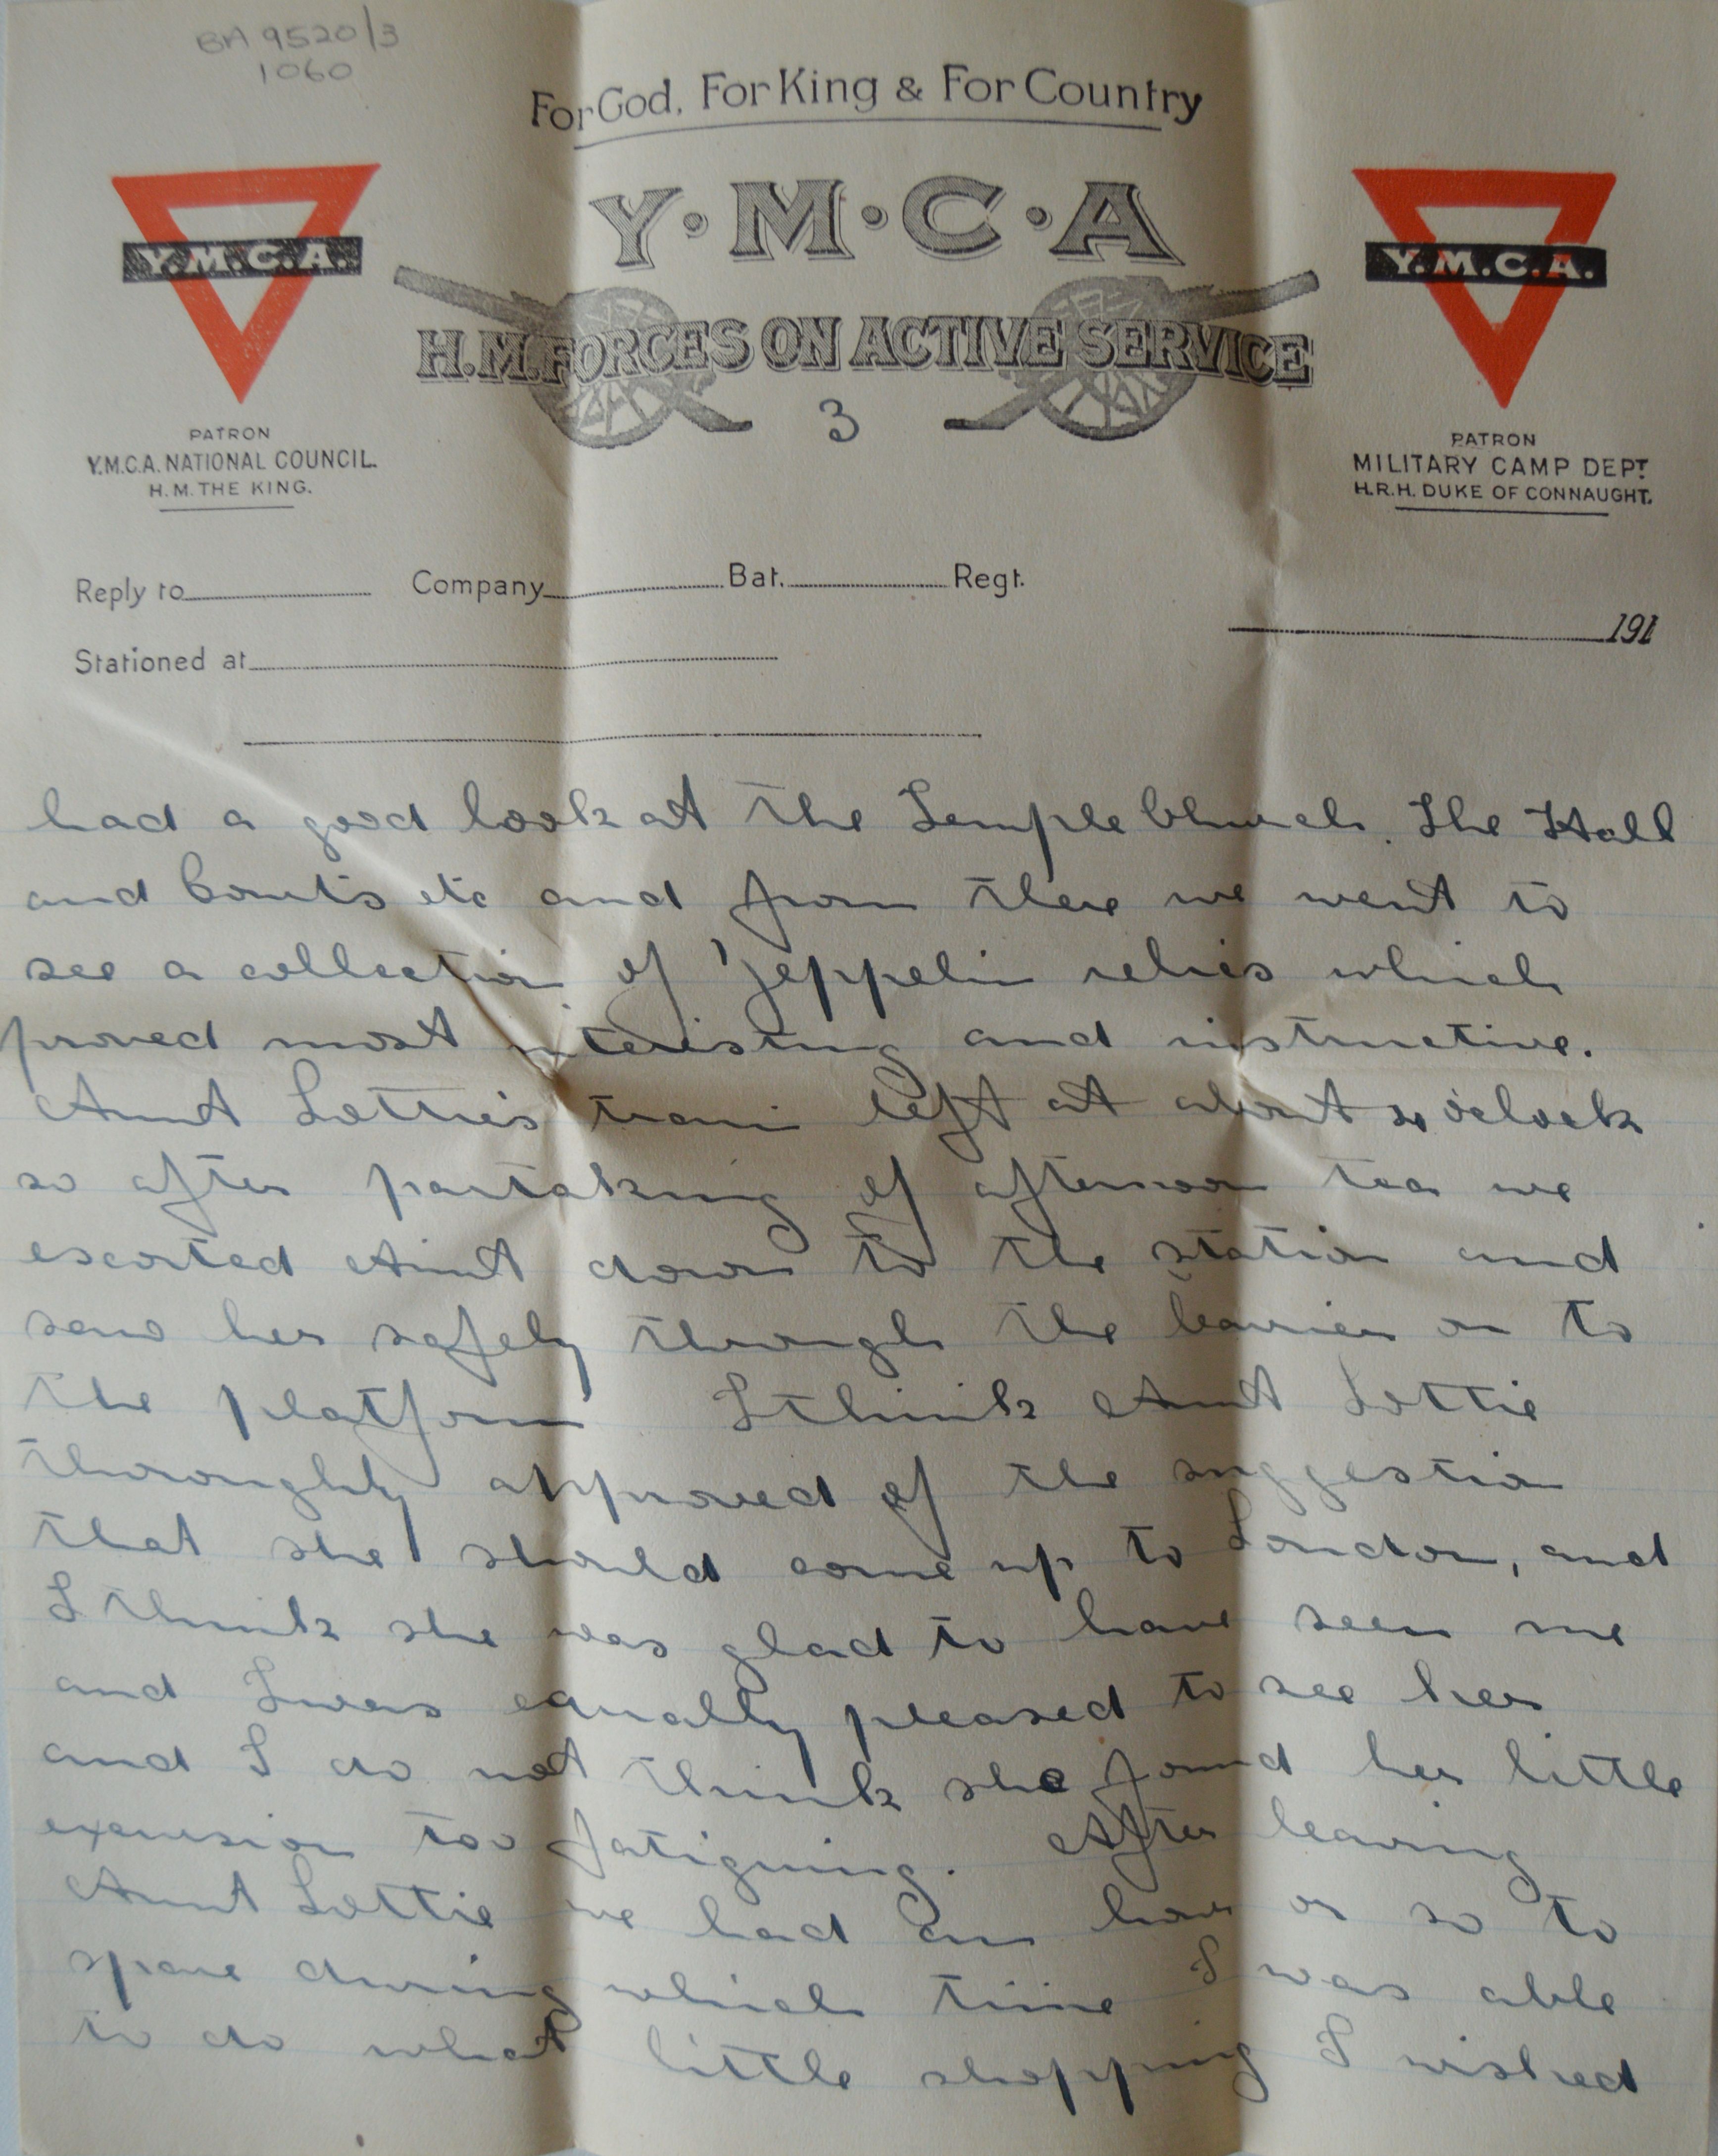 BA 9520/3
1060
For God, For King & For Country
Y·M·C·A
Y.M.C.A.
Y.M.C.A.
H.M. FORCES ON ACTIVE SERVICE
3
PATRON
Y.M.C.A. NATIONAL COUNCIL.
H.M. THE KING.
PATRON
MILITARY CAMP DEPT.
H.R.H. DUKE OF CONNAUGHT.
Reply to Company Bat. Regt.
191
Stationed at
had a good look at the Temple Church. The Hall
and Courts etc and from there we went to
see a collection of Zeppelin relics which
proved most interesting and instructive.
Aunt Lottie's train left at about o'clock
so after partaking of afternoon tea we
escorted Aunt down to the station and
saw her safely through the barrier on to
the platform I think Aunt Lottie
thoroughly approved of the suggestion
that she should come up to London, and
I think she was glad to have seen me
and I was equally pleased to see her
and I do not think she found her little
excursion too fatiguing. After leaving
Aunt Lottie we had an hour or so to
spare during which time I was able
to do what little shopping I wished